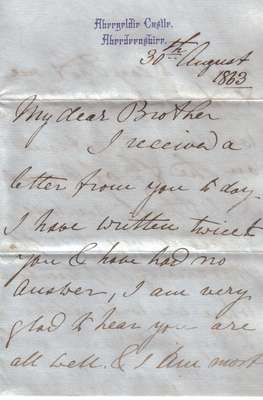 Abergeldie Castle.
Aberdeenshire.
30th August
1863
My dear Brother
I received a
letter from you to day.
I have written twice to
you & have had no
answer, I am very
glad to hear you are
all well. & I am most